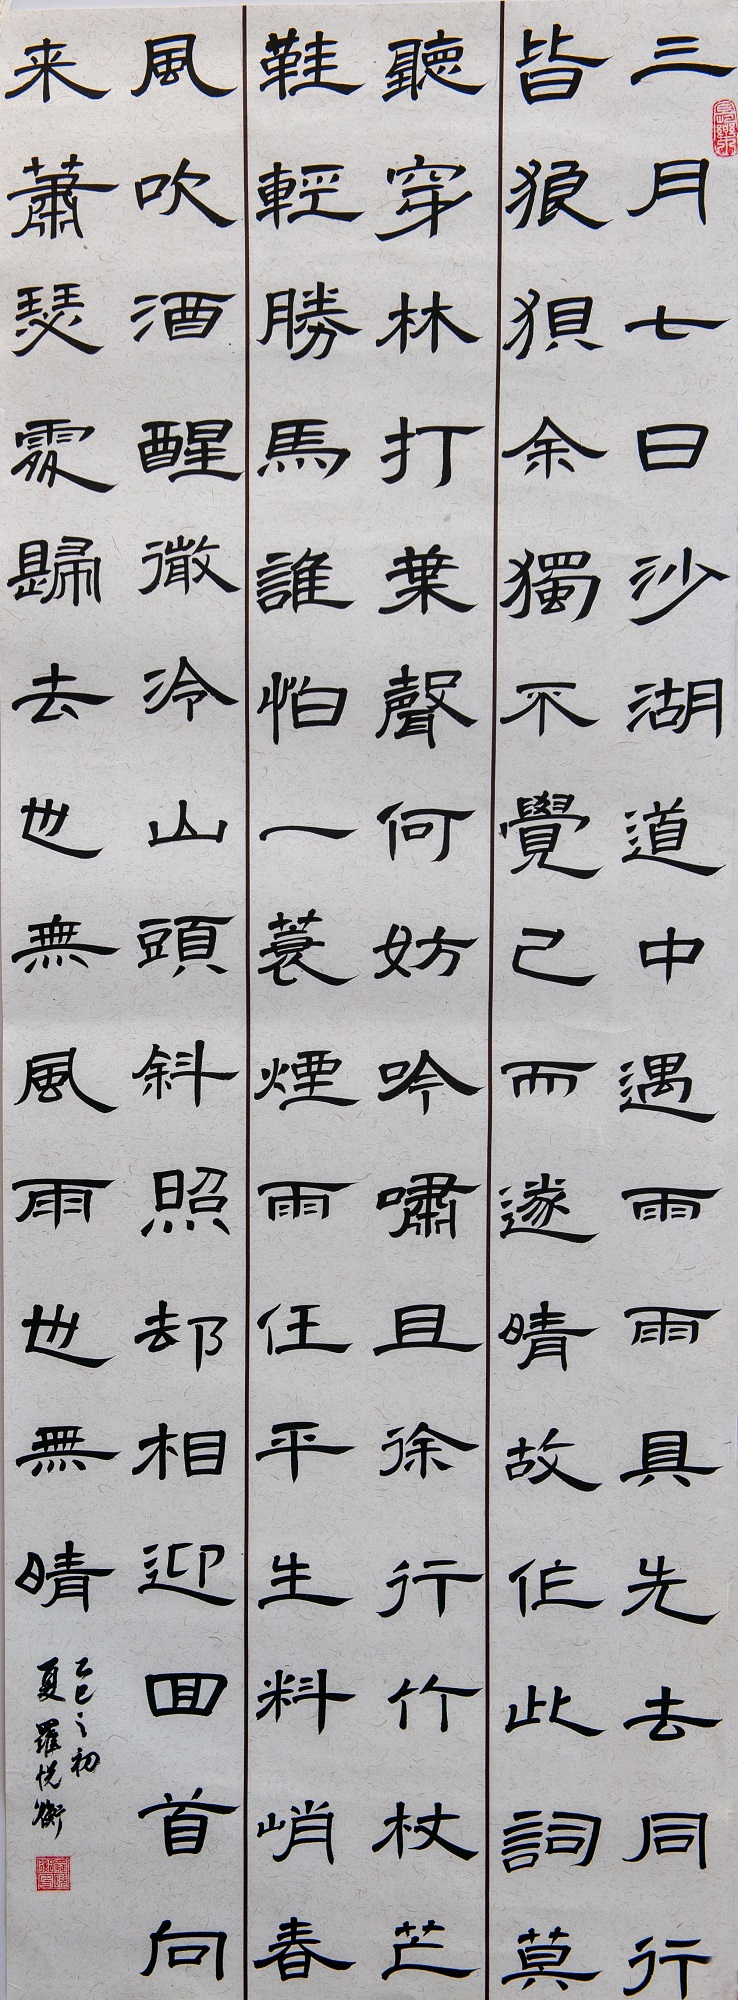 三月七日沙湖道中遇雨雨具先去同行
皆狼狽余獨不覺己而遂晴故作此詞莫
聽穿林打葉聲何妨吟嘯且徐行竹杖芒
鞋輕勝馬誰怕一蓑煙雨任平生料峭春
風吹酒醒微冷山頭斜照却相迎回首向
来蕭瑟處歸去也無風雨也無晴
乙巳之初
夏羅悦衡